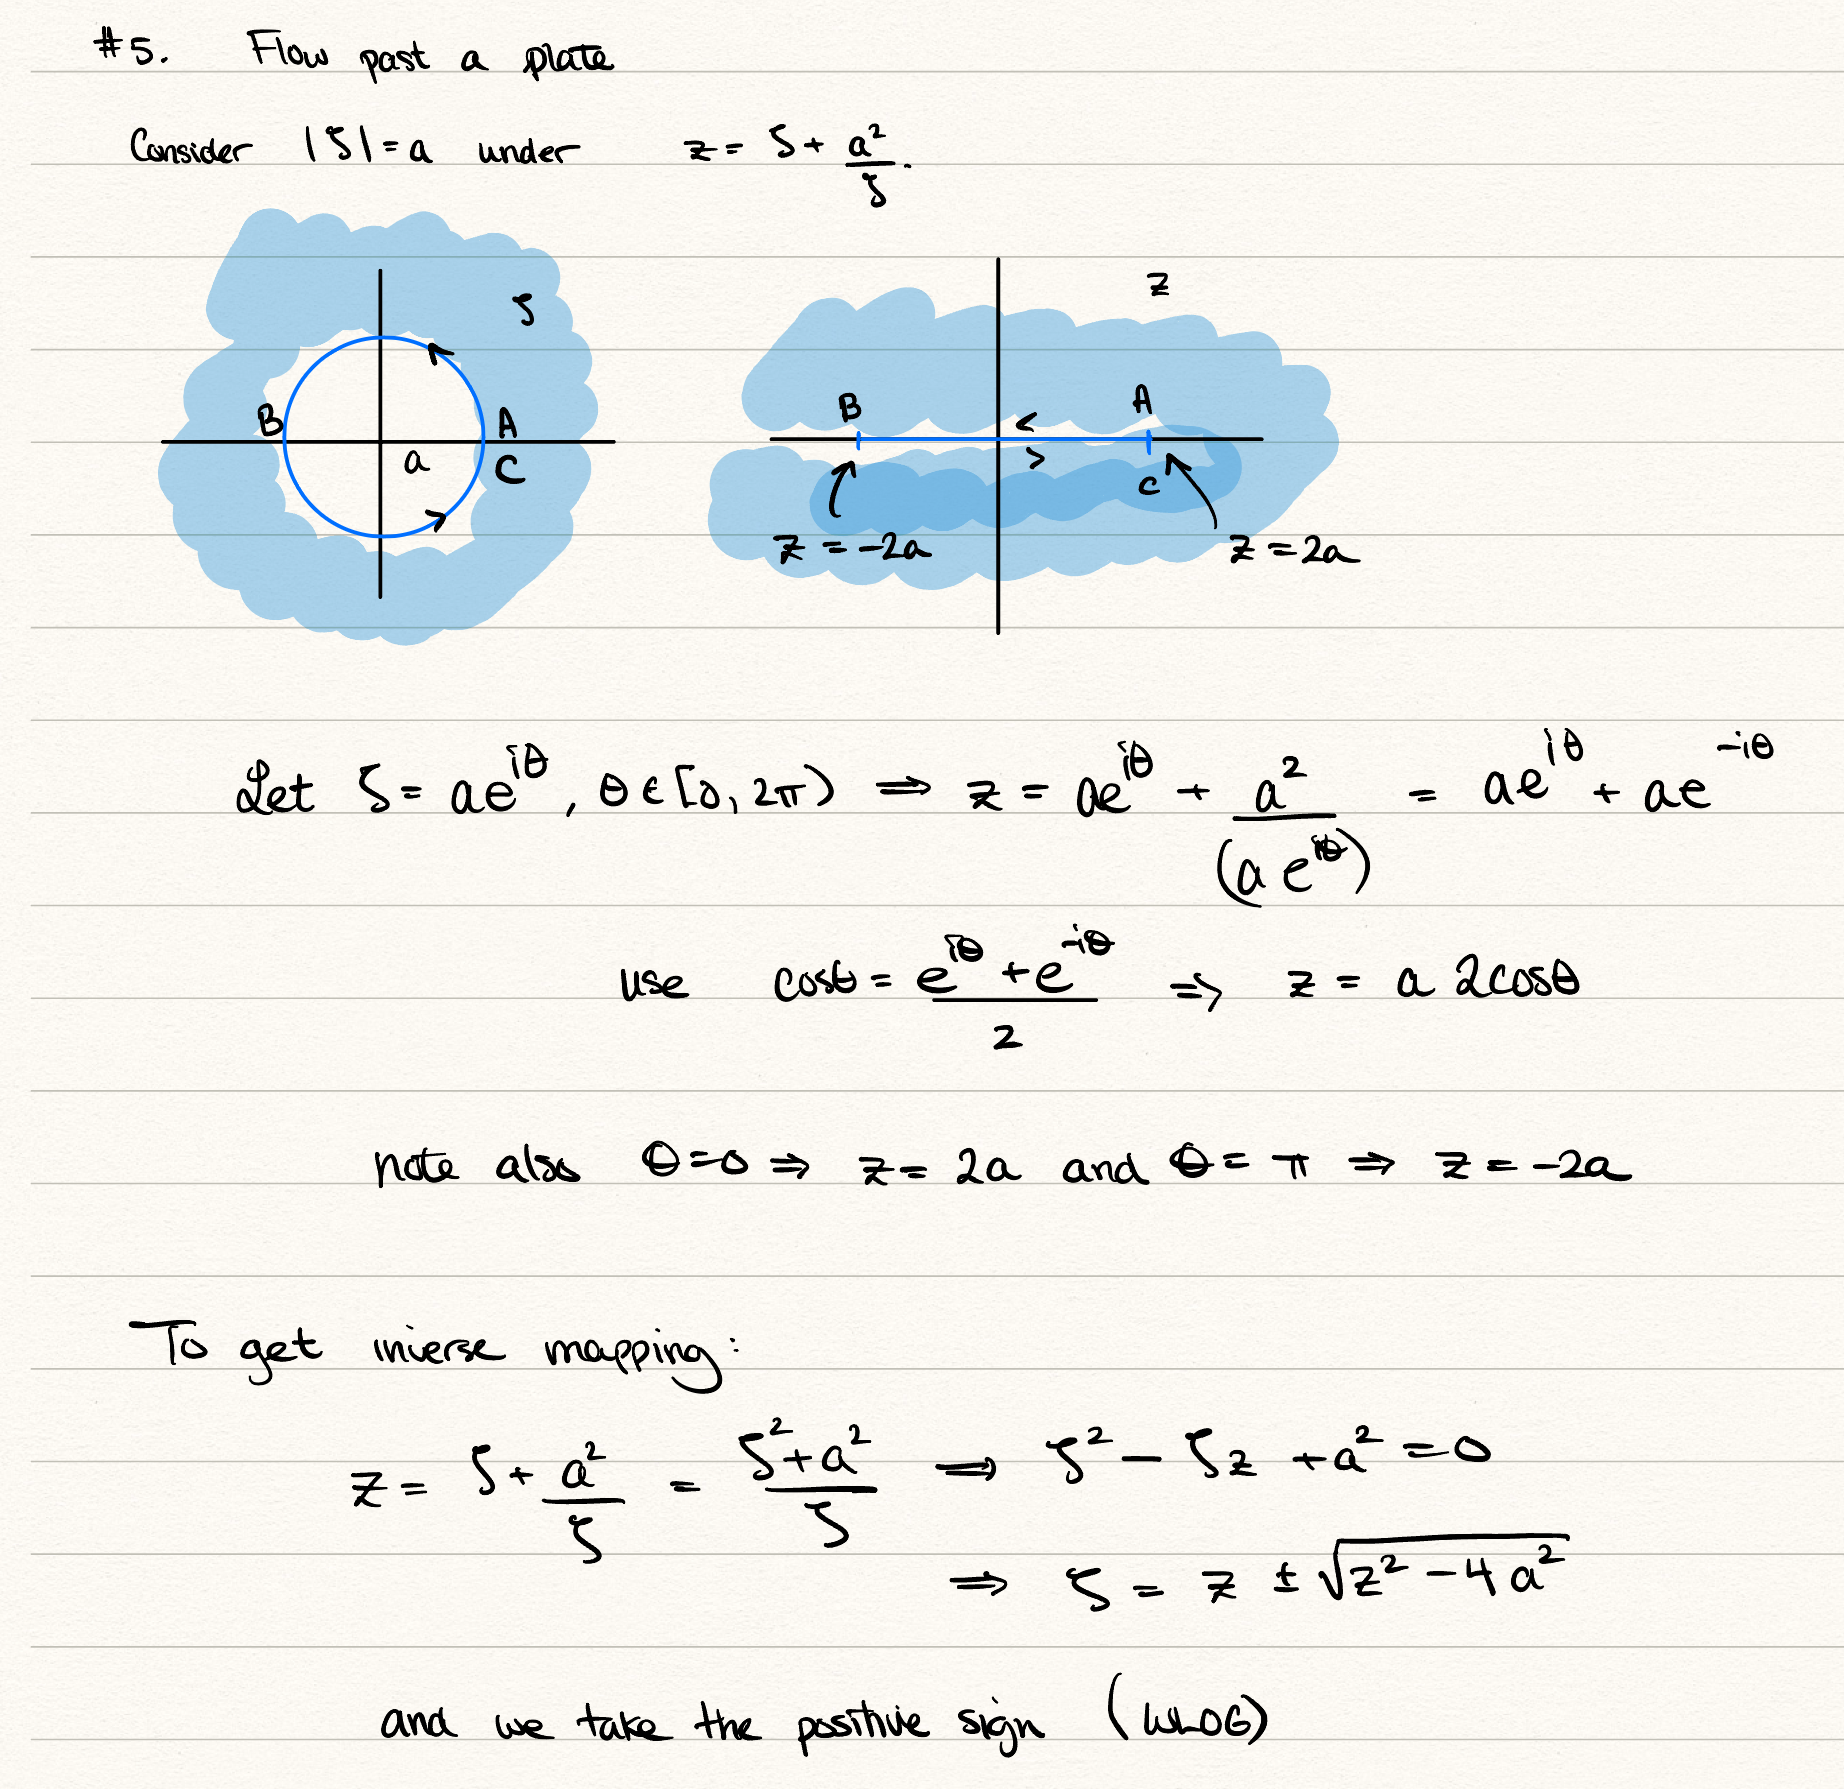 #5. Flow past a plate
Consider |ζ| = a under z = ζ + a²/ζ.
ζ
B A
a C
z
B < A
> C
z = -2a z = 2a
Let ζ = ae^{iθ}, θ ∈ [0, 2π) ⇒ z = ae^{iθ} + a²/(a e^{iθ}) = ae^{iθ} + ae^{-iθ}
use cosθ = (e^{iθ} + e^{-iθ})/2 ⇒ z = a 2cosθ
note also θ=0 ⇒ z = 2a and θ = π ⇒ z = -2a
To get inverse mapping:
z = ζ + a²/ζ = (ζ² + a²)/ζ ⇒ ζ² - ζz + a² = 0
⇒ ζ = z ± √(z² - 4a²)
and we take the positive sign (WLOG)